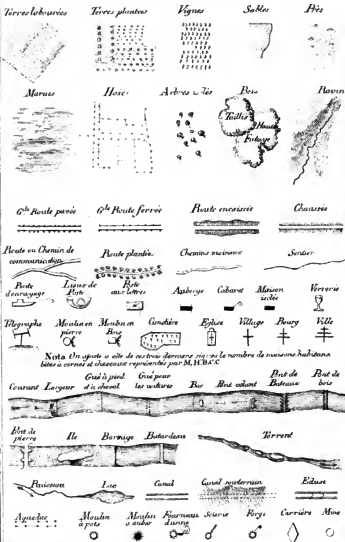 Terres labourées Terres plantées Vignes Sables Prés
Marais Haies Arbres isolés Bois Ravin
Taillis
Haute
Futaye
Gde Route pavée Gde Route ferrée Route encaissée Chaussée
Route ou Chemin de
communication Route plantée Chemins vicinaux Sentier
Poste
d'enrayage Lieux de
Poste Poste
aux lettres Auberge Cabaret Maison
isolée Verrerie
Télégraphe Moulin en
pierre Moulin en
Bois Cimetière Eglise Village Bourg Ville
Nota On ajoute a côté de ces trois derniers signes le nombre de maisons habitans
bêtes a cornes et chevaux représentés par M, H.B.C.C
Courant Largeur Gué à pied
et à cheval Gué pour
les voitures Bac Pont volant Pont de
Bateaux Pont de
bois
Pont de
pierre Ile Barrage Batardeau Torrent
Ruisseau Lac Canal Canal souterrain Ecluse
Aqueduc Moulin
à pots Moulin
a aubes Fourneau
d'usine Scierie Forge Carrière Mine